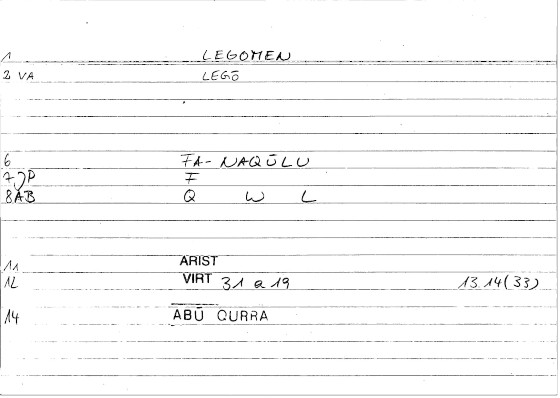 1 LEGOMEN
2 VA LEGŌ
6 FA- NAQŪLU
7 JP F
8AB Q W L
11 ARIST
12 VIRT 31 a 19 13.14(33)
14 ABŪ QURRA